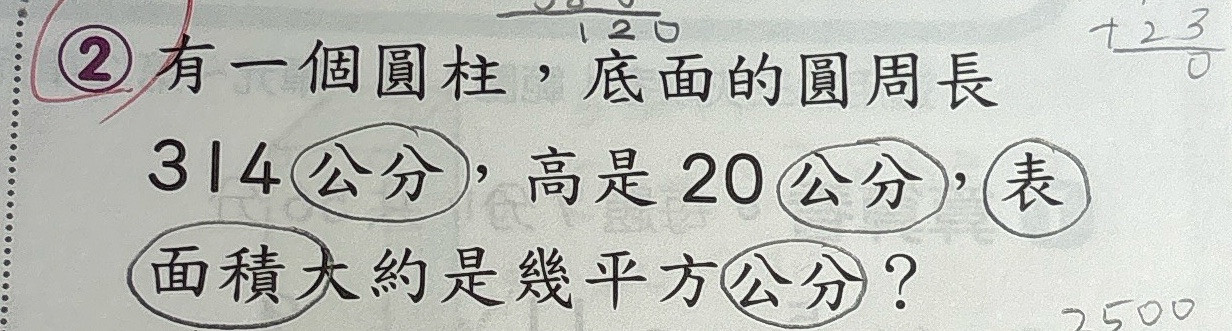 120
+23
0
② 有一個圓柱，底面的圓周長
314公分，高是20公分，表
面積大約是幾平方公分？
2500